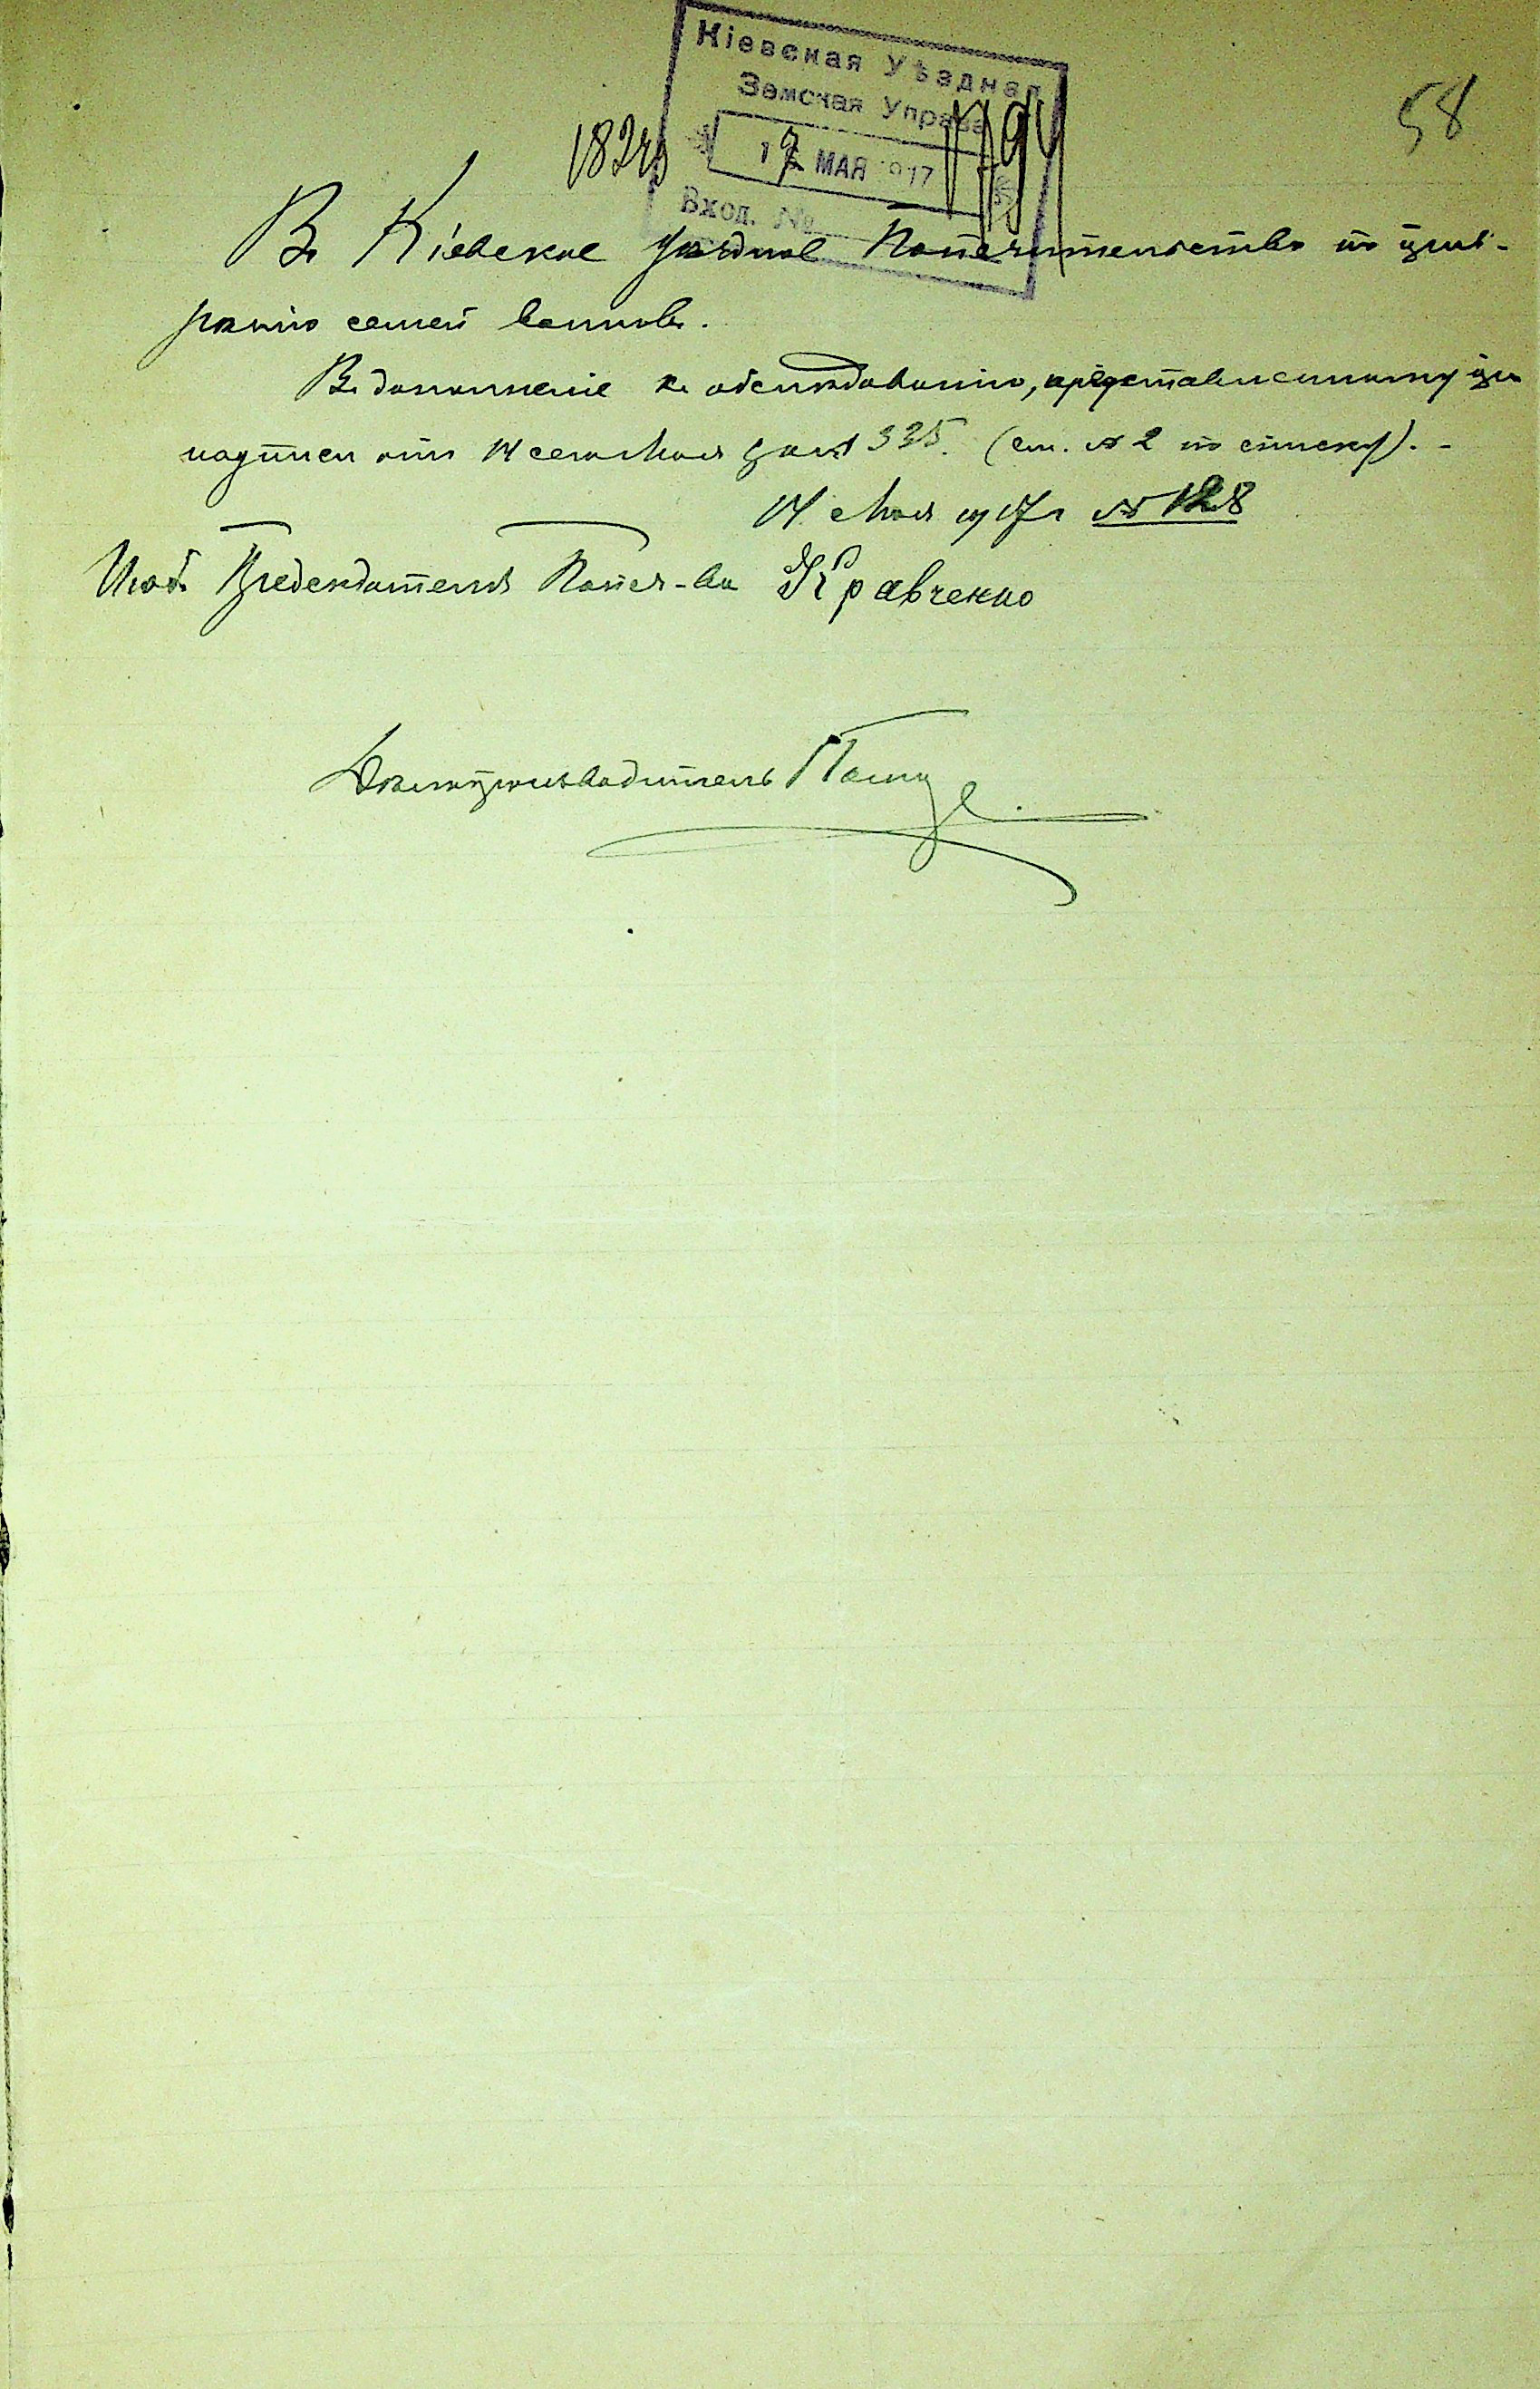 Кіевская Уѣздная
Земская Управа
58
17 МАЯ 1917
Вход. №
Въ Кіевское уѣздное Попечительство по приз-
рѣнію семей воиновъ.
Въ дополненіе къ обслѣдованію, представленному при
надписи отъ 14 сего Мая за № 335. (см. № 2 по списку). -
14 Мая 1917 г № 128
Предсѣдателя Попеч-ва Кравченко
Дѣлопроизводитель